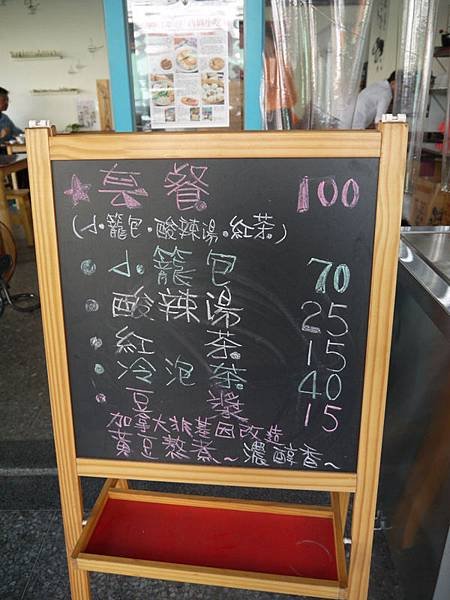 ★套餐 100
(小.籠包.酸辣湯.紅茶.)
小籠包 70
酸辣湯 25
紅茶 15
冷泡茶 40
豆漿 15
加拿大非基因改造
黃豆熬煮~濃醇香~